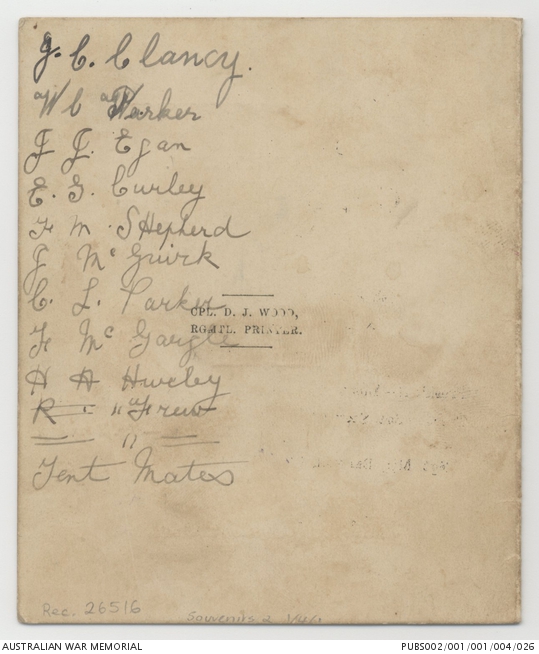 J. C. Clancy.
W C Parker
J J. Egan
E. G. Curley
F M Shepherd
J Mc Guirk
C. L. Parker
CPL. D. J. WOOD,
RGMTL. PRINTER.
F Mc Gargle
H A Hurley
R " Frew
"
Tent Mates
Rec. 26516
Souvenirs 2
AUSTRALIAN WAR MEMORIAL
PUBS002/001/001/004/026